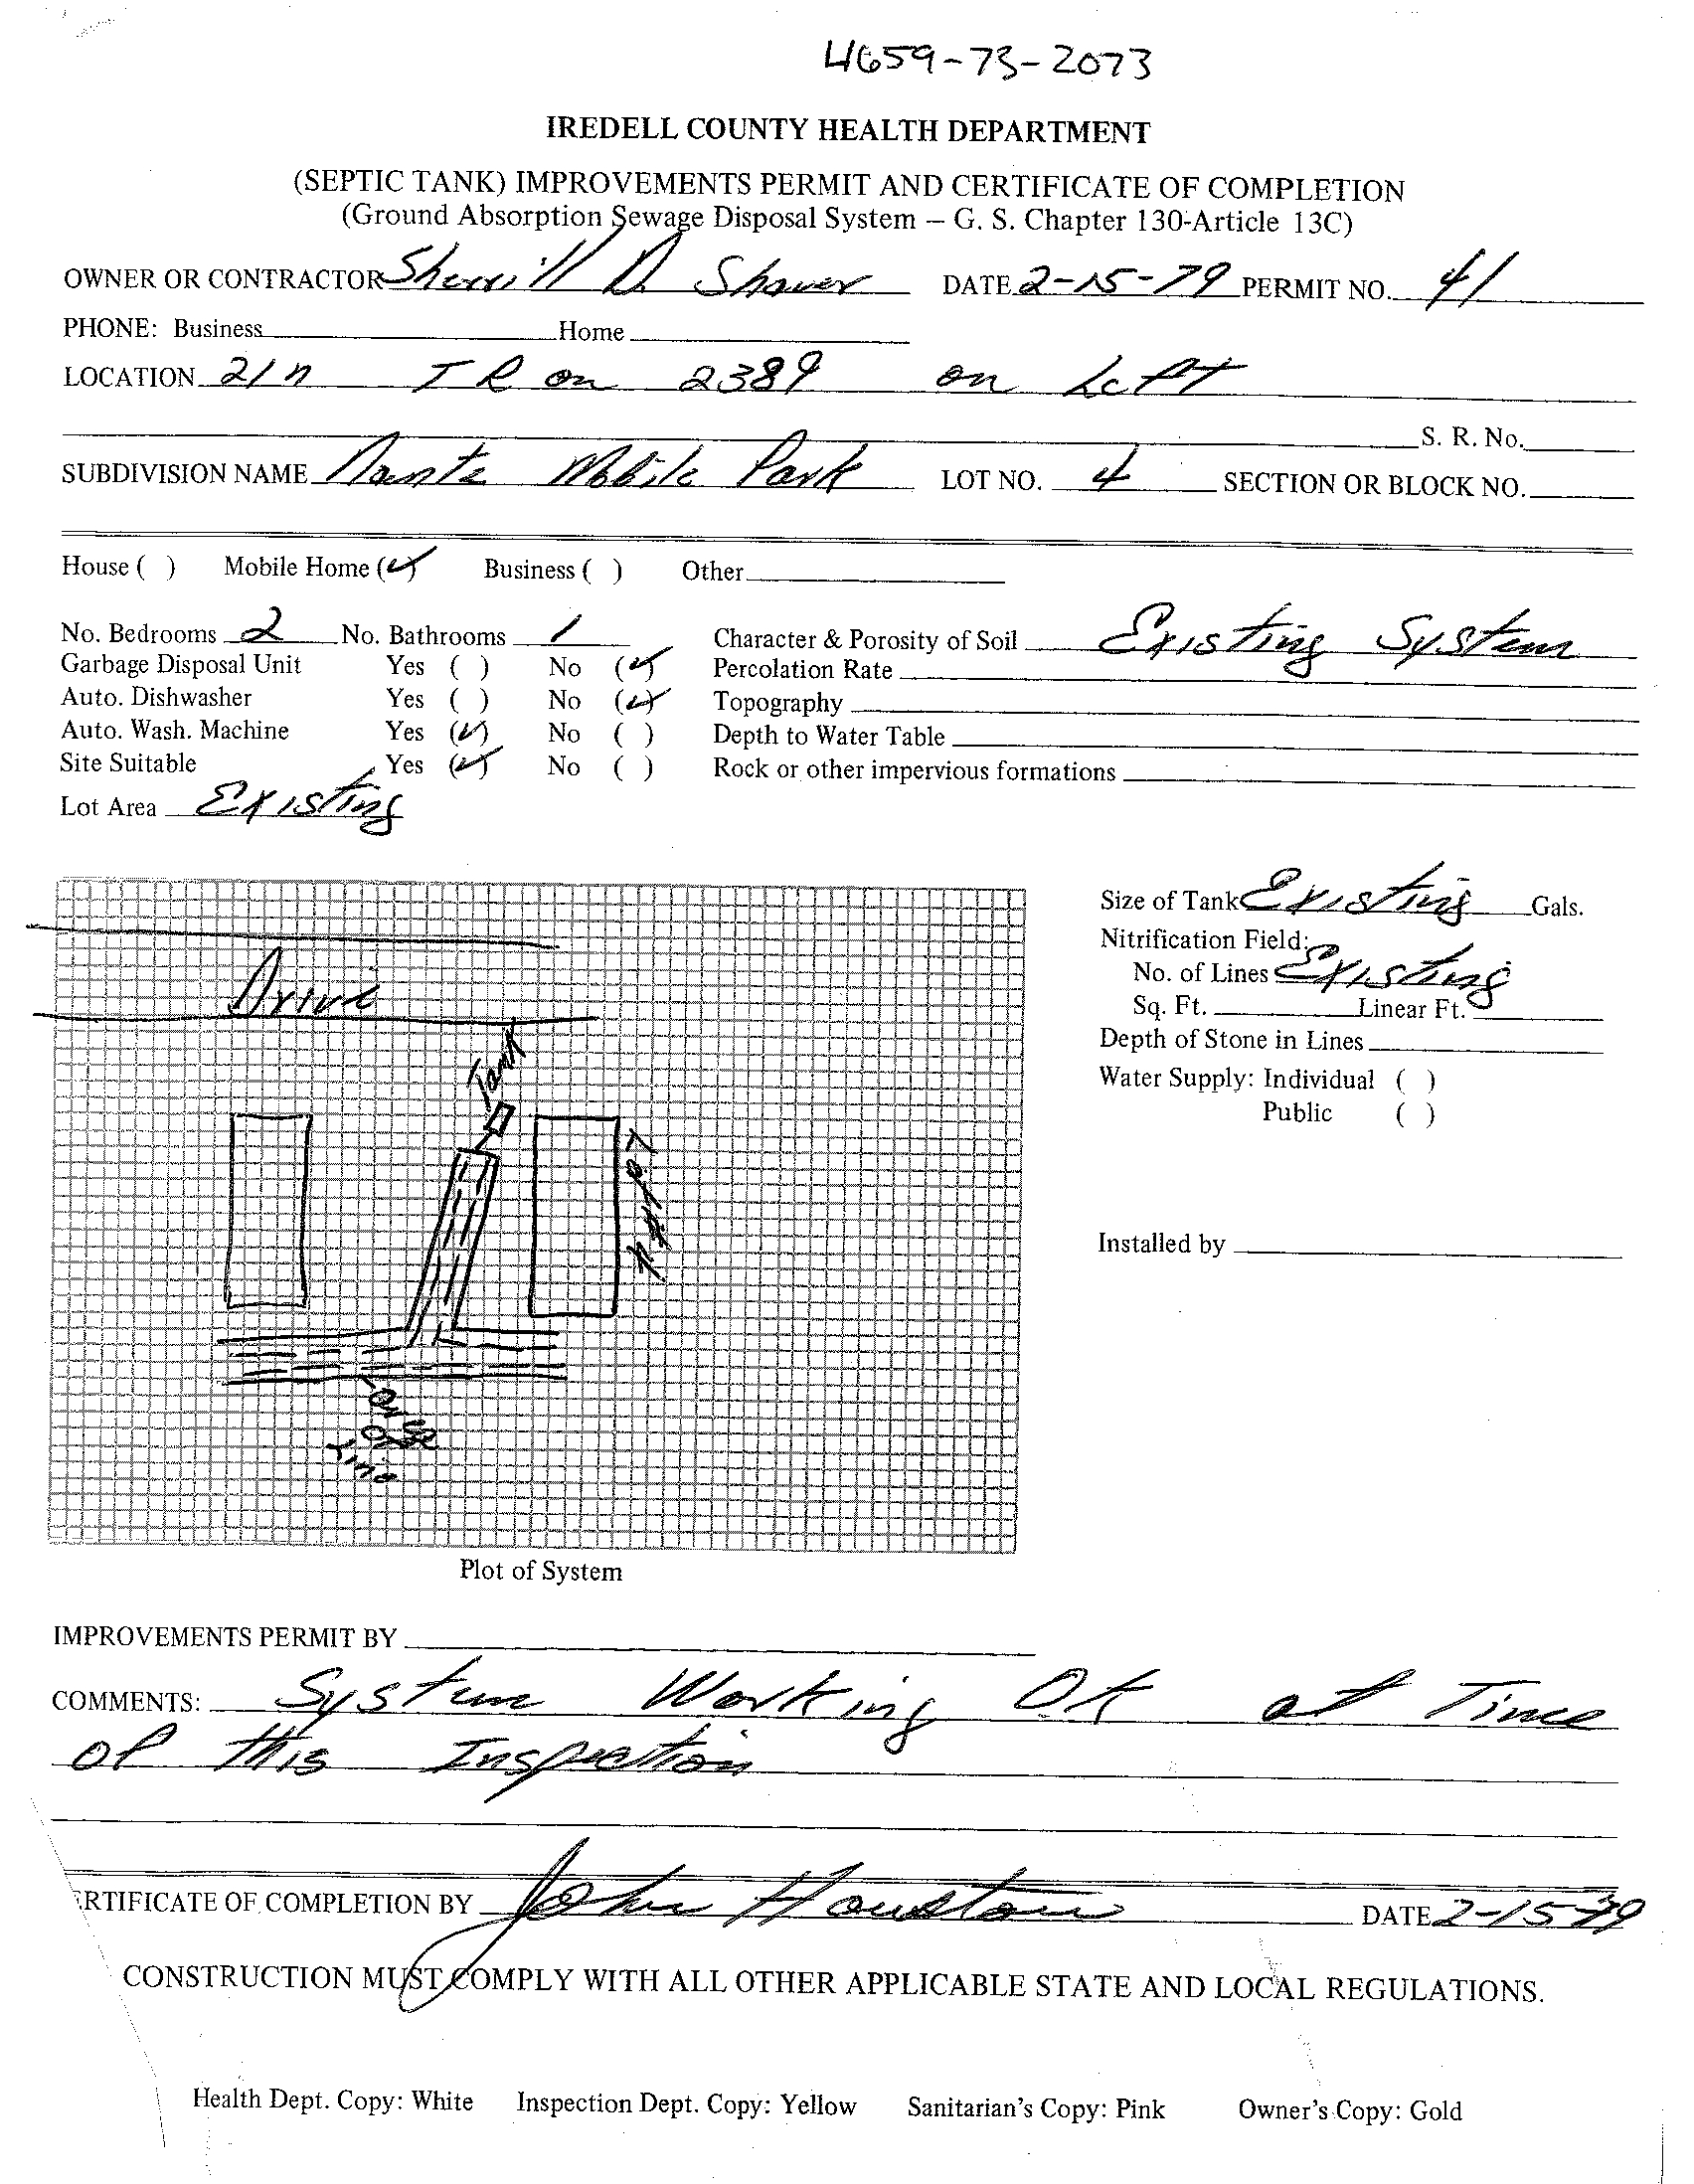 4659-73-2073
IREDELL COUNTY HEALTH DEPARTMENT
(SEPTIC TANK) IMPROVEMENTS PERMIT AND CERTIFICATE OF COMPLETION
(Ground Absorption Sewage Disposal System – G. S. Chapter 130-Article 13C)
OWNER OR CONTRACTOR Sherrill D. Shaver DATE 2-15-79 PERMIT NO. 41
PHONE: Business Home
LOCATION 21 N T R on 2389 on Left
S. R. No.
SUBDIVISION NAME Mobile Park LOT NO. 4 SECTION OR BLOCK NO.
House ( ) Mobile Home (✓) Business ( ) Other
No. Bedrooms 2 No. Bathrooms 1 Character & Porosity of Soil Existing System
Garbage Disposal Unit Yes ( ) No (✓) Percolation Rate
Auto. Dishwasher Yes ( ) No (✓) Topography
Auto. Wash. Machine Yes (✓) No ( ) Depth to Water Table
Site Suitable Yes (✓) No ( ) Rock or other impervious formations
Lot Area Existing
Size of Tank Existing Gals.
Nitrification Field:
No. of Lines Existing
Sq. Ft. Linear Ft.
Depth of Stone in Lines
Water Supply: Individual ( )
Public ( )
Installed by
Drive
Tank
Lot #4
Line
Plot of System
IMPROVEMENTS PERMIT BY
COMMENTS: System Working OK at Time
of this Inspection
ERTIFICATE OF COMPLETION BY John Houston DATE 2-15-79
CONSTRUCTION MUST COMPLY WITH ALL OTHER APPLICABLE STATE AND LOCAL REGULATIONS.
Health Dept. Copy: White Inspection Dept. Copy: Yellow Sanitarian's Copy: Pink Owner's Copy: Gold